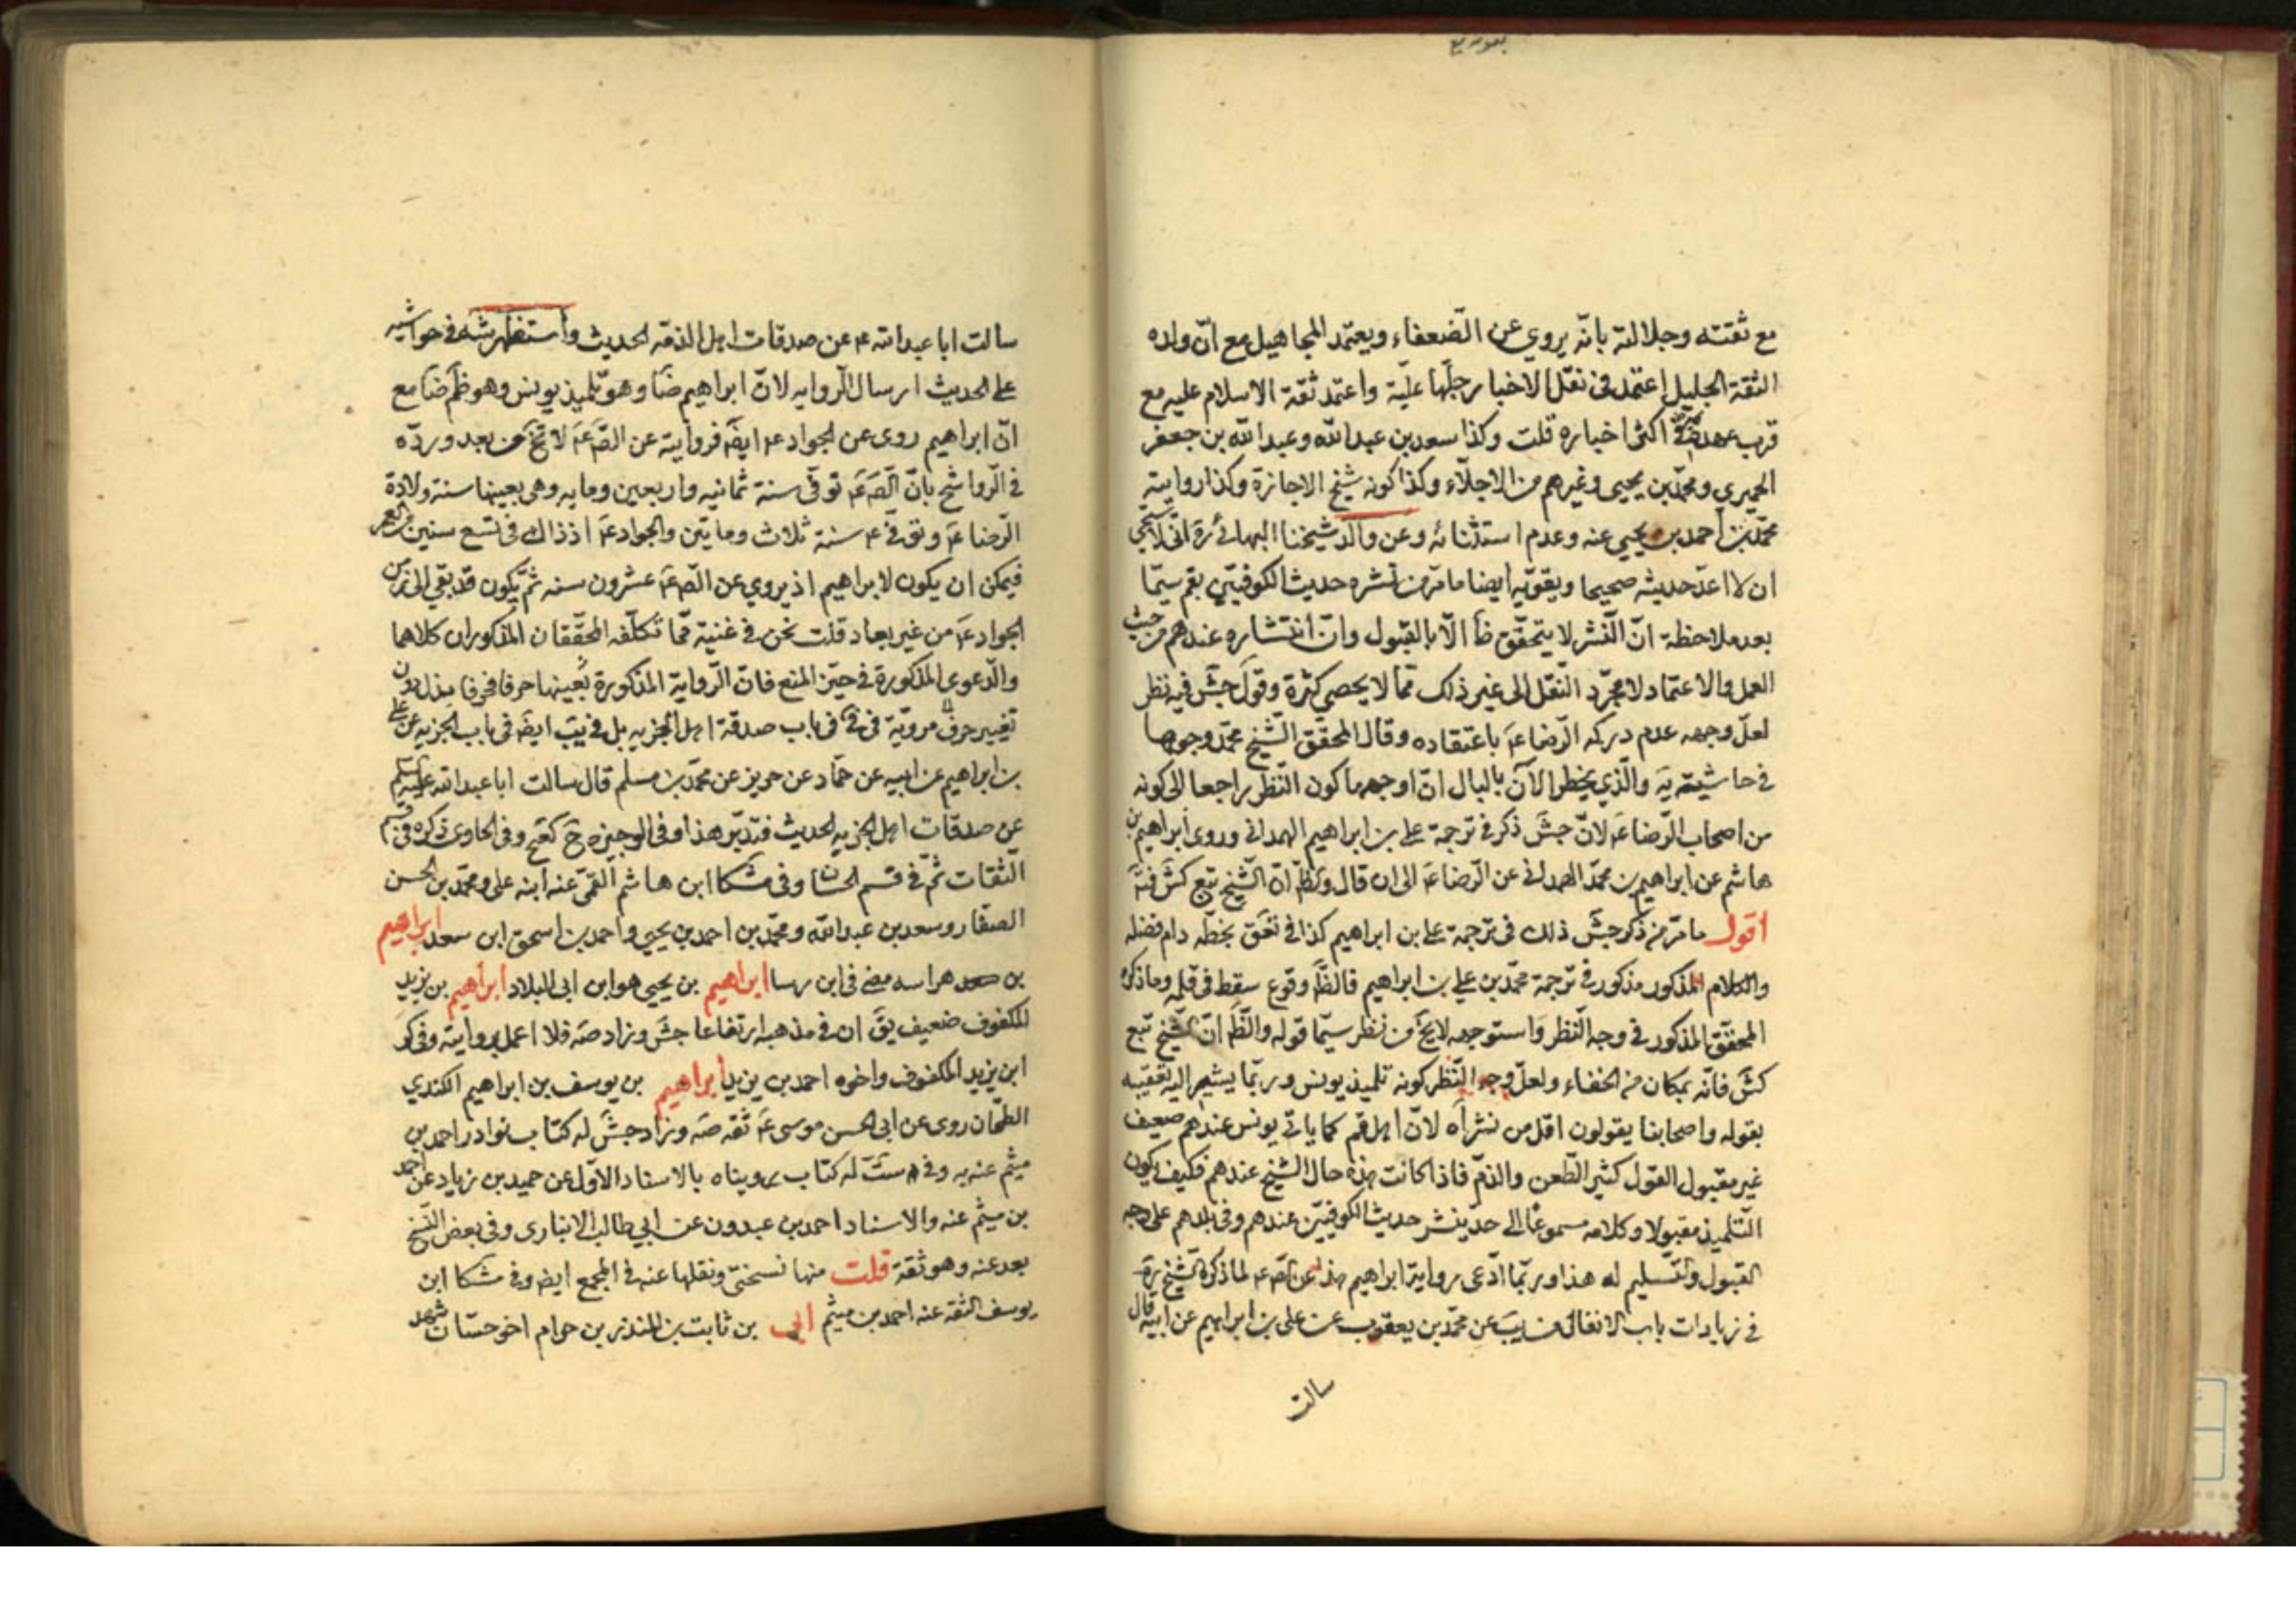 مع ثقته وجلالته بانّه يروي عن الضعفاء ويعتمد المجاهيل مع انّ ولده
الثقة الجليل اعتمد في نقل الاخبار جلّها عليه واعتمد ثقة الاسلام عليه مع
قرب عهده في اكثر اخباره قلت وكذا سعد بن عبد الله وعبد الله بن جعفر
الحميري ومحمّد بن يحيى وغيرهم من الاجلّاء وكذا كونه شيخ الاجازة وكذا رواية
محمّد بن احمد بن يحيى عنه وعدم استثنائه وعن والد شيخنا البهائي ره انّي لاستحيي
ان لا اعدّ حديثه صحيحا ويقوّيه ايضا ما مرّ من نشره حديث الكوفيّين بقم سيّما
بعد ملاحظة انّ النّشر لا يتحقّق ظا الّا بالقبول وانّ انتشاره عندهم من حيث
العمل والاعتماد لا مجرّد النّقل الى غير ذلك ممّا لا يحصى كثرة وقول جش فيه نظر
لعلّ وجهه عدم دركه الرّضا ع باعتقاده وقال المحقّق الشّيخ محمّد وجوها
في حاشيته يه والّذي يخطر الآن بالبال انّ اوجهها كون النّظر راجعا الى كونه
من اصحاب الرّضا ع لانّ جش ذكر في ترجمة علي بن ابراهيم الهمداني وروى ابراهيم بن
هاشم عن ابراهيم بن محمّد الهمداني عن الرّضا ع الى ان قال والظّ انّ الشّيخ تبع كش فتد
اقول ما مرّ من ذكر جش ذلك في ترجمة علي بن ابراهيم كذا في تعق بخطّه دام فضله
والكلام المذكور مذكور في ترجمة محمّد بن علي بن ابراهيم فالظّ وقوع سقط في قلمه وما ذكره
المحقّق المذكور في وجه النّظر واستوجهه لا يخ من نظر سيّما قوله والظّ انّ الشّيخ تبع
كش فانّه بمكان من الخفاء ولعلّ وجه النّظر كونه تلميذ يونس وربّما يشير اليه تعقيبه
بقوله واصحابنا يقولون اوّل من نشر اه لانّ اهل قم كما ياتي يونس عندهم ضعيف
غير مقبول القول كثير الطّعن والذمّ فاذا كانت هذه حال الشّيخ عندهم فكيف يكون
التّلميذ مقبولا وكلامه مسموعا الى حد ينشر حديث الكوفيّين عندهم وفي بلدهم على وجه
القبول والتّسليم له هذا وربّما ادّعى رواية ابراهيم هذا عن الصّ ع لما ذكره الشّيخ ره
في زيادات باب الانفال من يب عن محمّد بن يعقوب عن علي بن ابراهيم عن ابيه قال
سالت
سالت ابا عبد الله ع عن صدقات اهل الذمّه الحديث واستظهر شه في حواشيه
على الحديث ارسال الروايه لانّ ابراهيم ضا وهو تلميذ يونس وهو ظم ضا مع
انّ ابراهيم روى عن الجواد ع ايضا فروايته عن الصّ ع لا تخ من بعد وردّه
في الرّواشح بانّ الصّ ع توفّي سنة ثمانيه واربعين ومايه وهي بعينها سنة ولادة
الرّضا ع وتوفّي ع سنة ثلاث ومايتين والجواد ع اذ ذاك في تسع سنين من العمر
فيمكن ان يكون لابراهيم اذ يروي عن الصّ ع عشرون سنه ثمّ يكون قد بقي الى زمن
الجواد ع من غير بعاد قلت نحن في غنية ممّا تكلّفه المحقّقان المذكوران كلاهما
والدّعوى المذكورة في حيّز المنع فانّ الرّواية المذكورة بعينها حرفا فحرفا بدون
تغيير حرف مرويّة في في في باب صدقة اهل الجزيه بل في يب ايضا في باب الجزيه عن علي
بن ابراهيم عن ابيه عن حمّاد عن حريز عن محمّد بن مسلم قال سالت ابا عبد الله عليه السلم
عن صدقات اهل الجزيه الحديث فتدبّر هذا وفي الوجيزه ح كصح وفي الحاوي ذكره في قسم
الثّقات ثمّ في قسم الحسان وفي مشكا ابن هاشم القمّي عنه ابنه علي ومحمّد بن الحسن
الصفّار وسعد بن عبد الله ومحمّد بن احمد بن يحيى واحمد بن اسحق ابن سعد ابراهيم
بن هراسه مضى في ابن رسا ابراهيم بن يحيى هو ابن ابي البلاد ابراهيم بن يزيد
المكفوف ضعيف يق ان في مذهبه ارتفاعا جش وزاد صه فلا اعمل بروايته وفي كر
ابن يزيد المكفوف واخوه احمد بن يزيد ابراهيم بن يوسف بن ابراهيم الكندي
الطحّان روى عن ابي الحسن موسى ع ثقه صه وزاد جش له كتاب نوادر احمد بن
ميثم عنه به وفي ست له كتاب رويناه بالاسناد الاوّل عن حميد بن زياد عن احمد
بن ميثم عنه والاسناد احمد بن عبدون عن ابي طالب الانباري وفي بعض النّسخ
بعد عنه وهو ثقة قلت منها نسختي ونقلها عنه في المجمع ايضا وفي مشكا ابن
يوسف الثقه عنه احمد بن ميثم ابي بن ثابت بن المنذر بن حرام اخو حسّان شهد